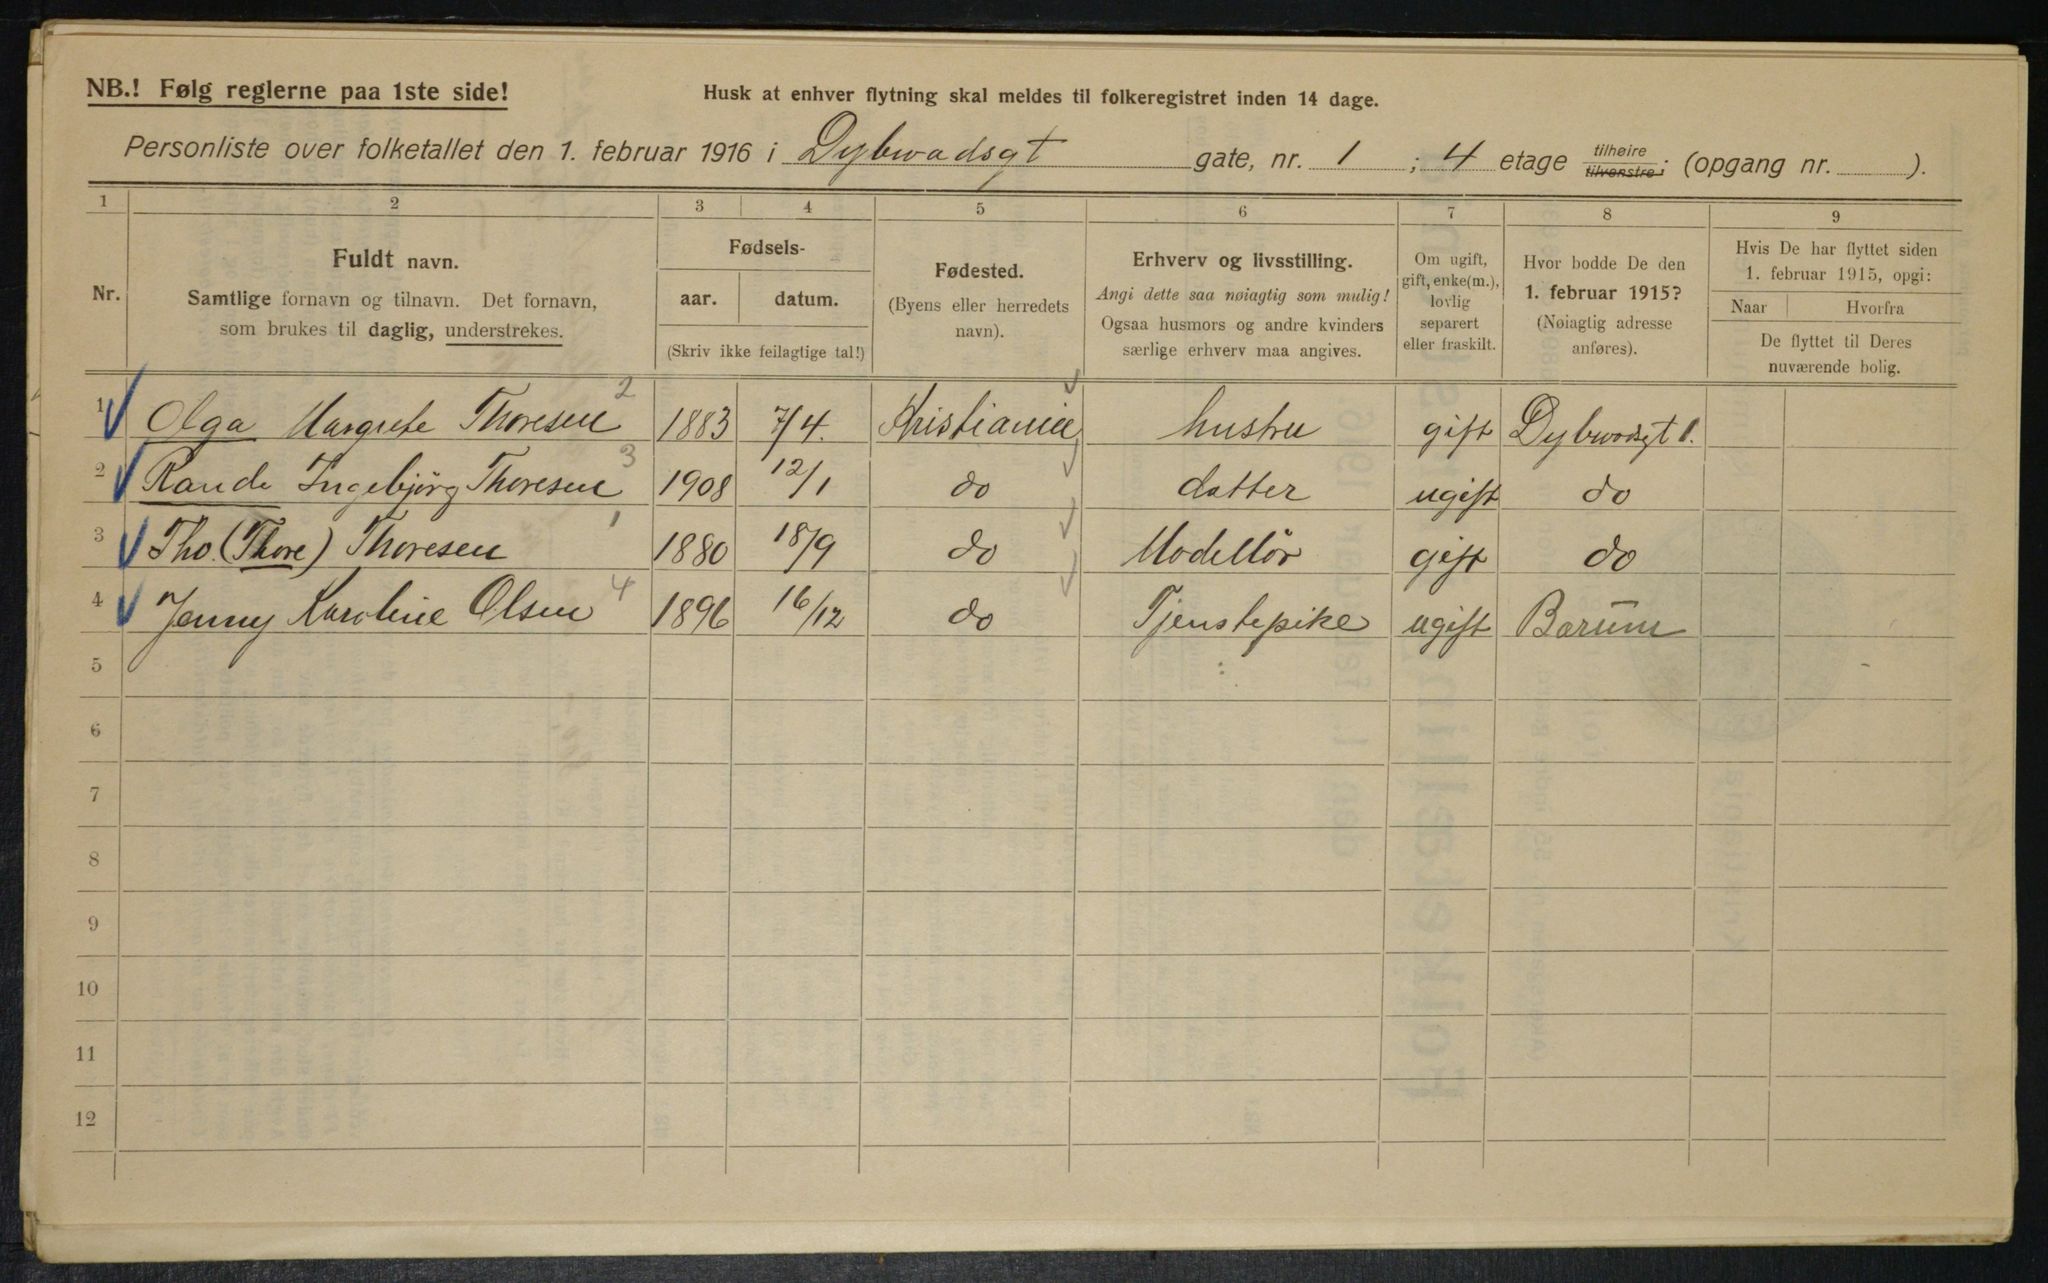 NB.! Følg reglerne paa 1ste side!
Husk at enhver flytning skal meldes til folkeregistret inden 14 dage.
Personliste over folketallet den 1. februar 1916 i Dybwadsgt gate, nr. 1 ; 4 etage tilhøire tilvenstre; (opgang nr. ).
1 2 3 4 5 6 7 8 9
Nr.
Fuldt navn.
Samtlige fornavn og tilnavn. Det fornavn,
som brukes til daglig, understrekes.
Fødsels-
aar. datum.
(Skriv ikke feilagtige tal!)
Fødested.
(Byens eller herredets
navn).
Erhverv og livsstilling.
Angi dette saa nøiagtig som mulig!
Ogsaa husmors og andre kvinders
særlige erhverv maa angives.
Om ugift,
gift, enke(m.),
lovlig
separert
eller fraskilt.
Hvor bodde De den
1. februar 1915?
(Nøiagtig adresse
anføres).
Hvis De har flyttet siden
1. februar 1915, opgi:
Naar Hvorfra
De flyttet til Deres
nuværende bolig.
1 Olga Margrete Thoresen 2 1883 7/4. Kristiania hustru gift Dybwadsgt 1.
2 Rande Ingebjörg Thoresen 3 1908 12/1 do datter ugift do
3 Tho. (Thore) Thoresen 1 1880 18/9 do Modellör gift do
4 Jenny Karoline Olsen 4 1896 16/12 do Tjenstepike ugift Bærum
5
6
7
8
9
10
11
12